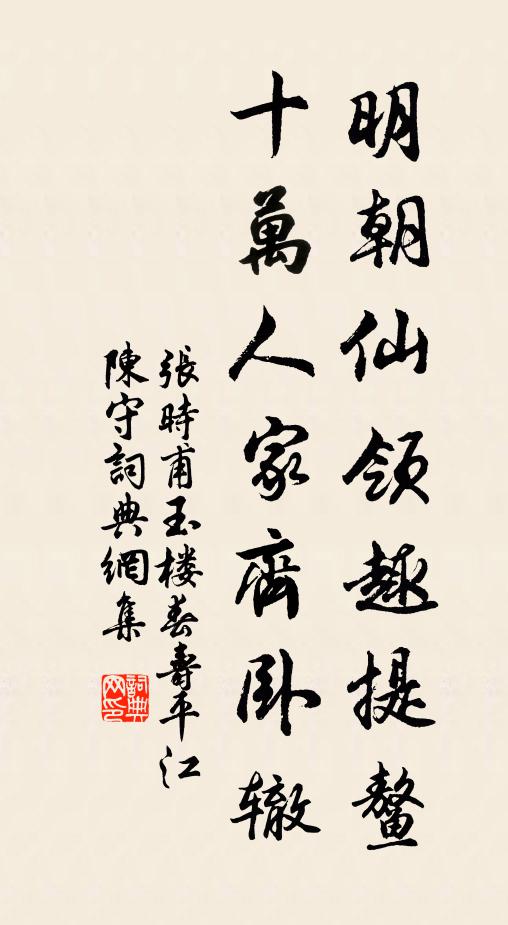 明朝仙領趣提鳌
十萬人家齊卧辙
張時甫玉楼春壽平江
陳守詞典網集
詞典网印